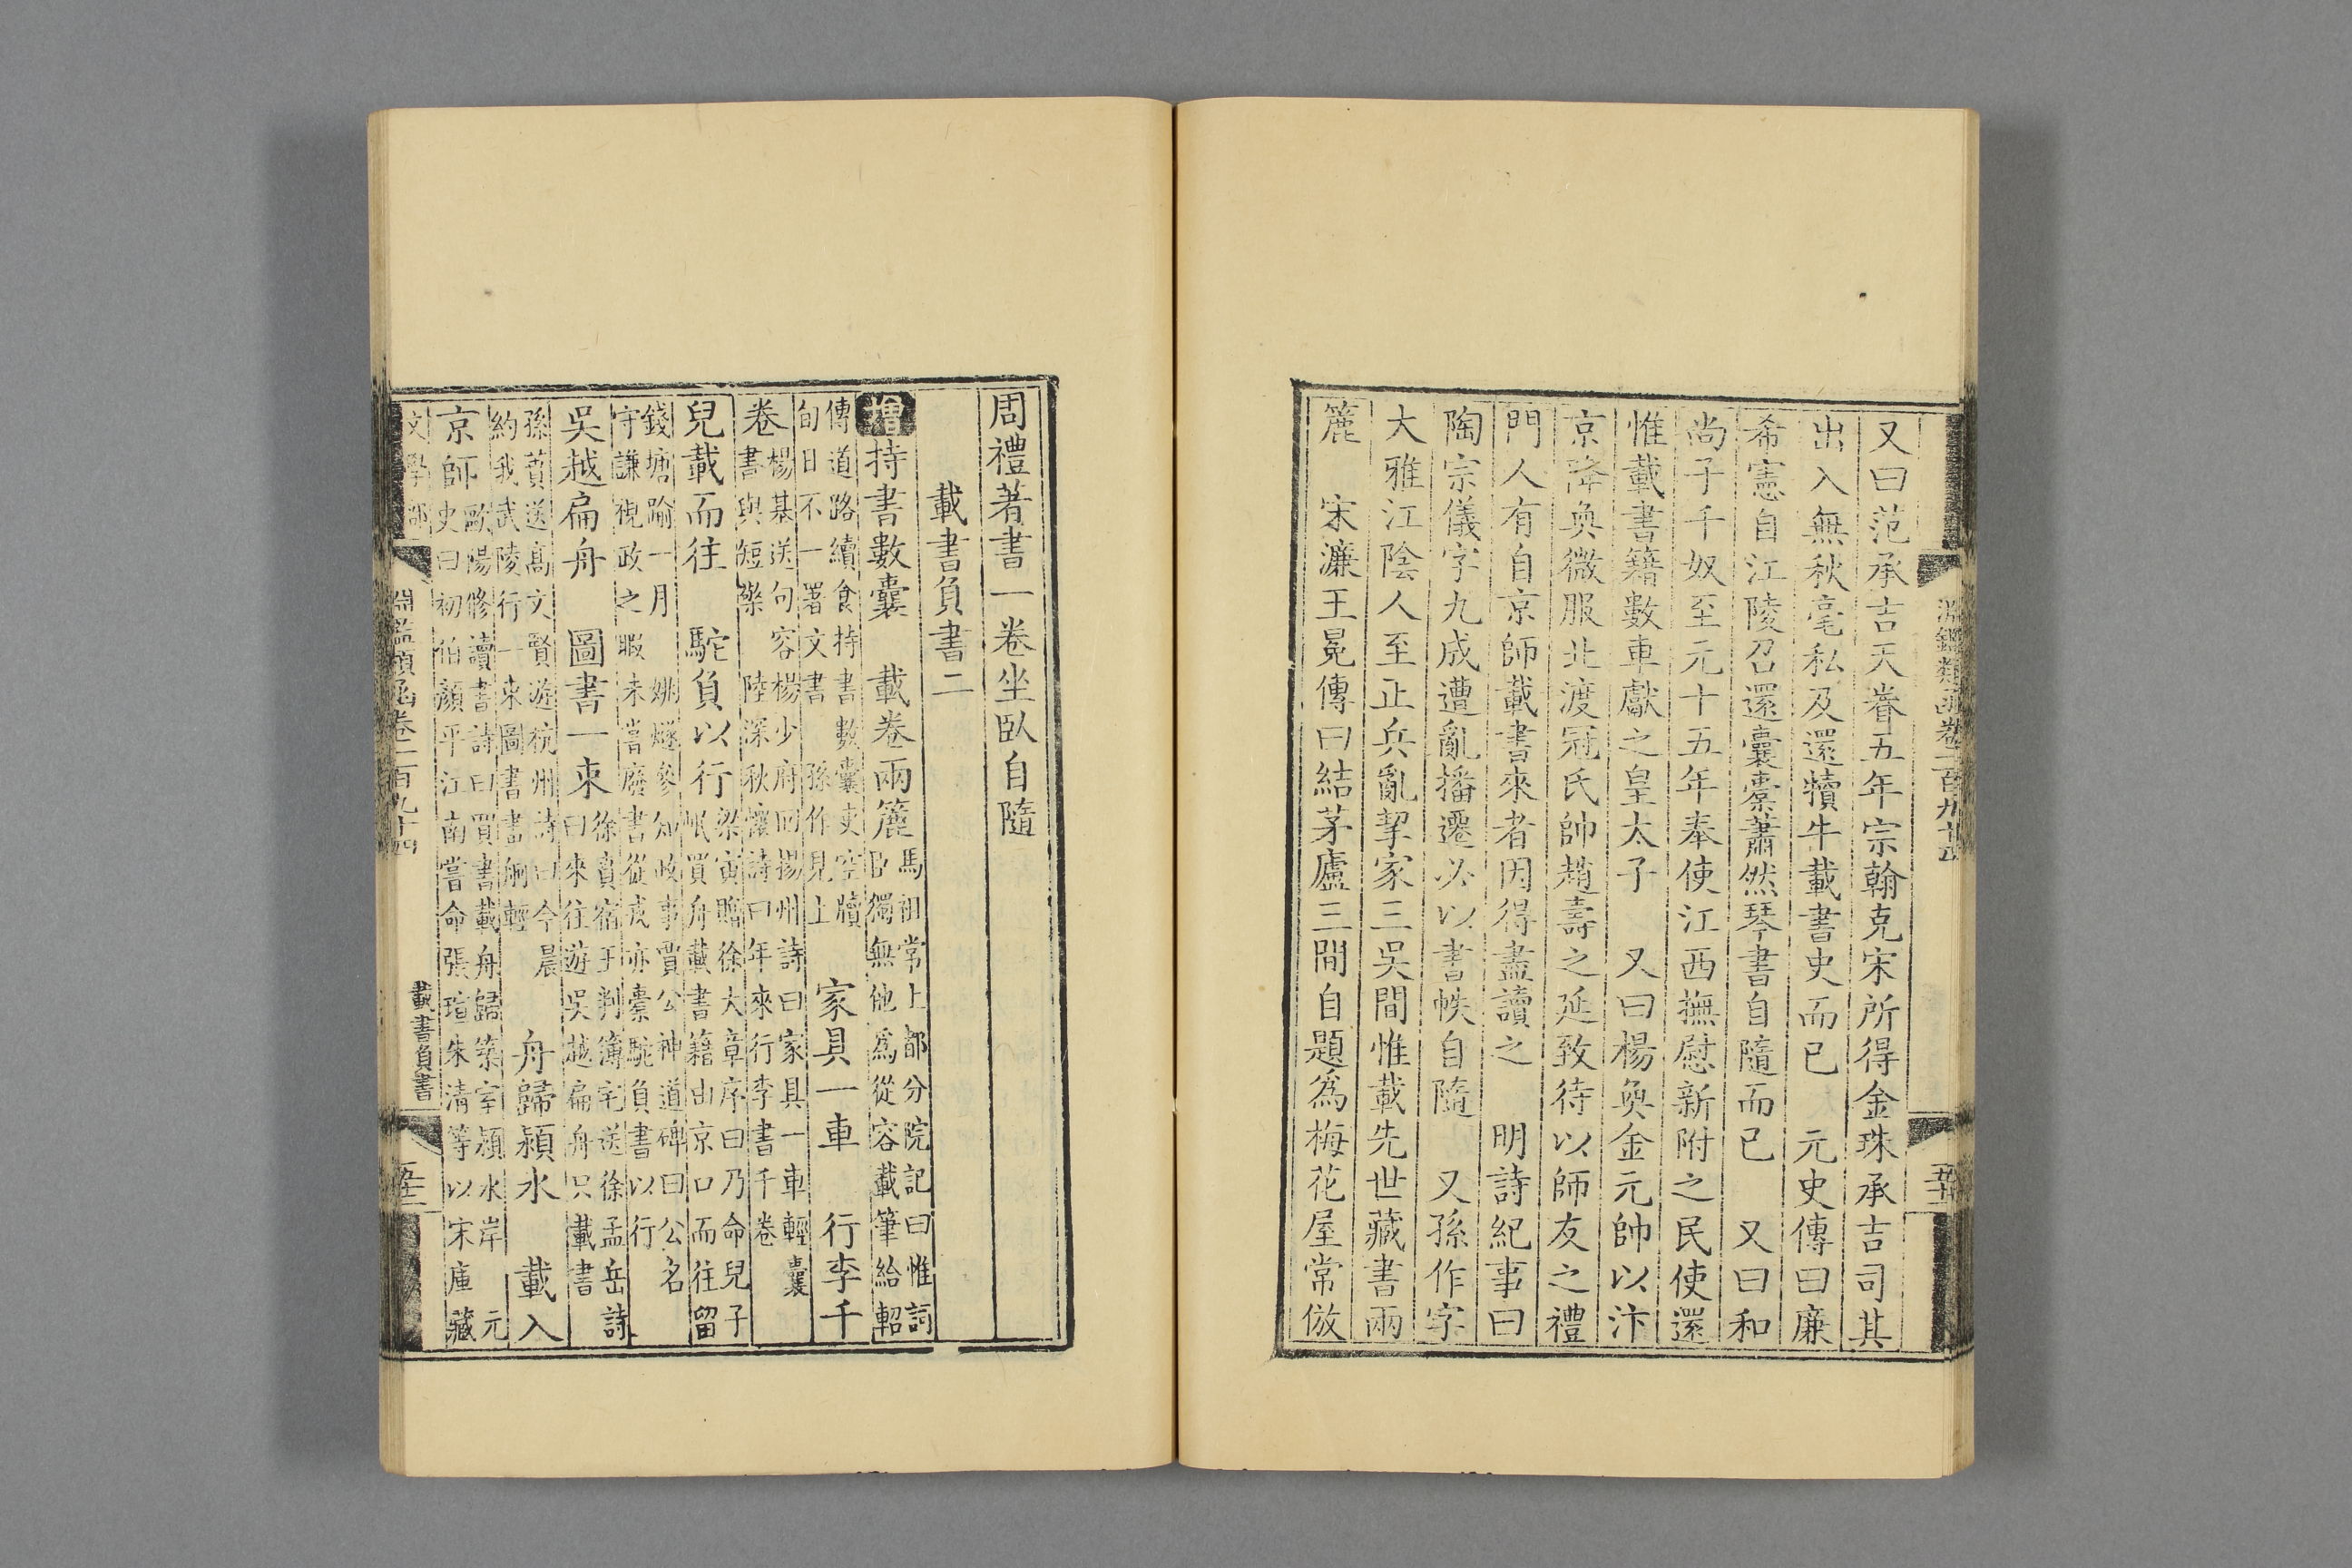 淵鑑類函卷一百九十四
又曰范承吉天眷五年宗翰克宋所得金珠承吉司其
出入無秋毫私及還犢牛載書史而已　元史傳曰廉
希憲自江陵召還囊橐蕭然琴書自隨而已　又曰和
尚子千奴至元十五年奉使江西撫慰新附之民使還
惟載書籍數車獻之皇太子　又曰楊奐金元帥以汴
京降奐微服北渡冠氏帥趙壽之延致待以師友之禮
門人有自京師載書來者因得盡讀之　明詩紀事曰
陶宗儀字九成遭亂播遷必以書帙自隨　又孫作字
大雅江陰人至正兵亂挈家三吳間惟載先世藏書兩
簏　宋濂王冕傳曰結茅廬三間自題為梅花屋常倣
周禮著書一卷坐臥自隨
載書負書二
增持書數囊
傳道路續食持書數囊吏空牘
旬日不一署文書　孫作見上
載卷兩簏
馬祖常上都分院記曰惟詞
臣獨無他為從容載筆給軺
傳道路續食持書數囊吏空牘
旬日不一署文書　孫作見上
家具一車　行李千
卷
楊基送句容楊少府回揚州詩曰家具一車輕囊
書與短檠　陸深秋懷詩曰年來行李書千卷
兒載而往　駝負以行
梁寅贈徐大章序曰乃命兒子
岷買舟載書籍出京口而往留
錢塘踰一月　姚燧參知政事賈公神道碑曰公名
守謙視政之暇未嘗廢書從戎亦橐駝負書以行
吳越扁舟　圖書一束
徐賁宿王判簿宅送徐孟岳詩
曰來往遊吳越扁舟只載書
孫蕡送高文賢遊杭州詩曰今晨
約我武陵行一束圖書書舸輕
舟歸潁水　載入
京師
歐陽修讀書詩曰買書載舟歸築室潁水岸　元
史曰初伯顏平江南嘗命張瑄朱清等以宋庫藏
文學部
淵鑑類函卷一百九十四
載書負書